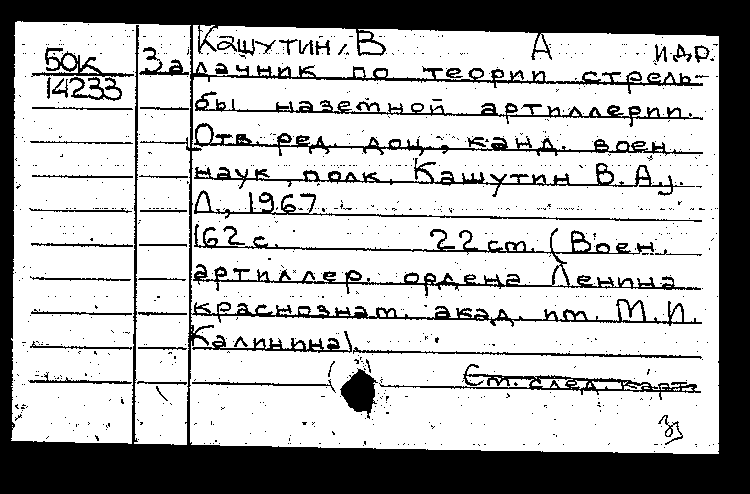 Кашутин, В А и др.
БОК За дачник по теории стрель-
14233 бы наземной артиллерии.
[Отв. ред. доц., канд. воен.
наук, полк. Кашутин В.А.].
Л., 1967.
162 с. 22 см. (Воен.
артиллер. ордена Ленина
краснознам. акад. им. М.И.
Калинина).
См. след. карт